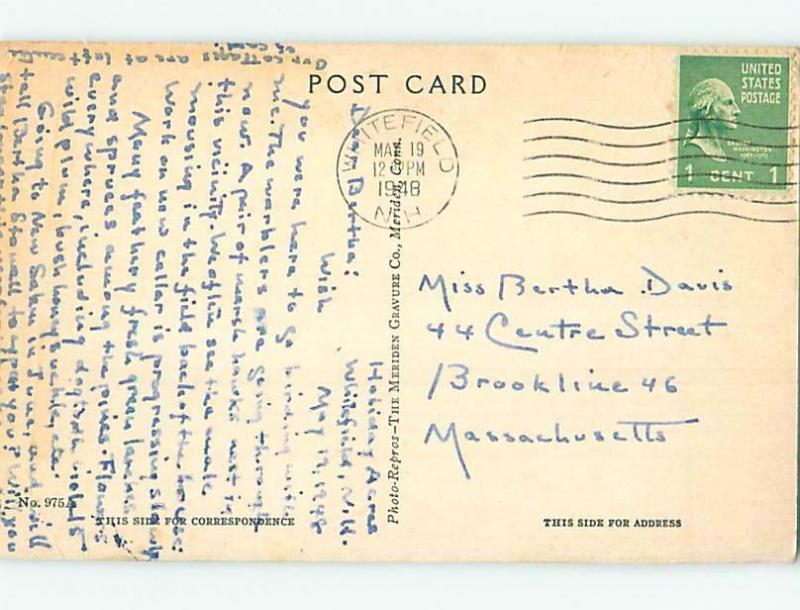 POST CARD
UNITED
STATES
POSTAGE
1 CENT 1
WHITEFIELD
MAY 19
12 PM
1948
N.H.
Miss Bertha Davis
44 Centre Street
Brookline 46
Massachusetts
Photo-Repros—THE MERIDEN GRAVURE Co., Meriden, Conn.
No. 975A
THIS SIDE FOR CORRESPONDENCE
THIS SIDE FOR ADDRESS
Holiday Acres
Whitefield, N.H.
May 19, 1948
Dear Bertha:
Wish
you were here to go birding with
me. The warblers are going through
now. A pair of marsh hawks nest in
this vicinity. We often see the male
mousing in the field back of the house.
Work on now cellar is progressing slowly
Many feathery fresh green larches
and spruces among the pines. Flowers
everywhere, including dogtooth violets
wild plum, bush honeysuckle, etc.
Going to New in June, and will
Bertha to you? Will you
our cottages are at left